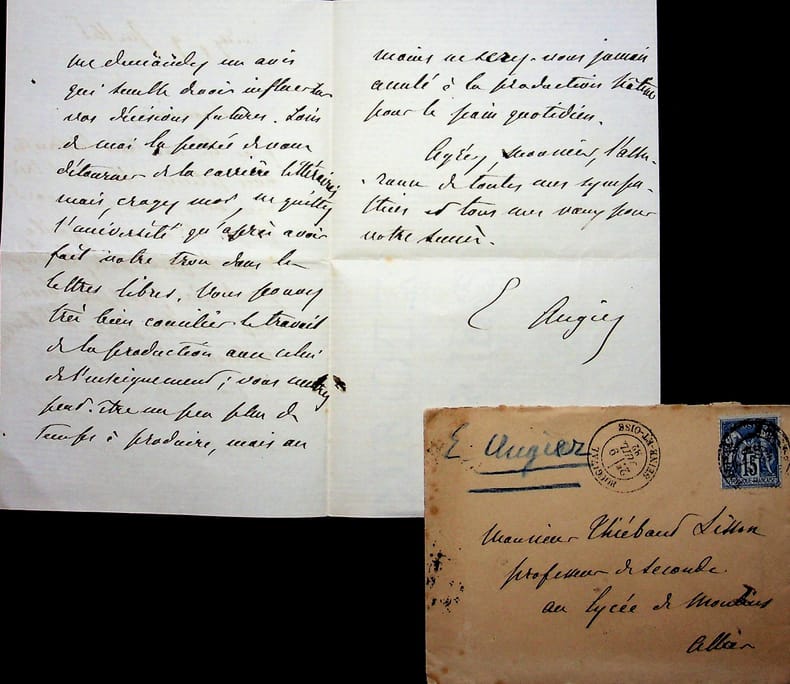 me demandez un avis
qui semble devoir influer sur
vos décisions futures. Loin
de moi la pensée de vous
détourner de la carrière littéraire
mais, croyez moi, ne quittez
l'université qu'après avoir
fait votre trou dans les
lettres libres. Vous pouvez
très bien concilier le travail
de la production avec celui
de l'enseignement; vous mettrez
peut-être un peu plus de
temps à produire, mais au
moins ne serez-vous jamais
acculé à la production hâtive
pour le pain quotidien.
Agréez, monsieur, l'assu-
rance de toutes mes sympa-
thies et tous mes vœux pour
votre succès.
E Augier
E Augier
SEINE-ET-OISE
BOUGIVAL
15
Monsieur Thiébaud
professeur de seconde
au lycée de Moulins
Allier